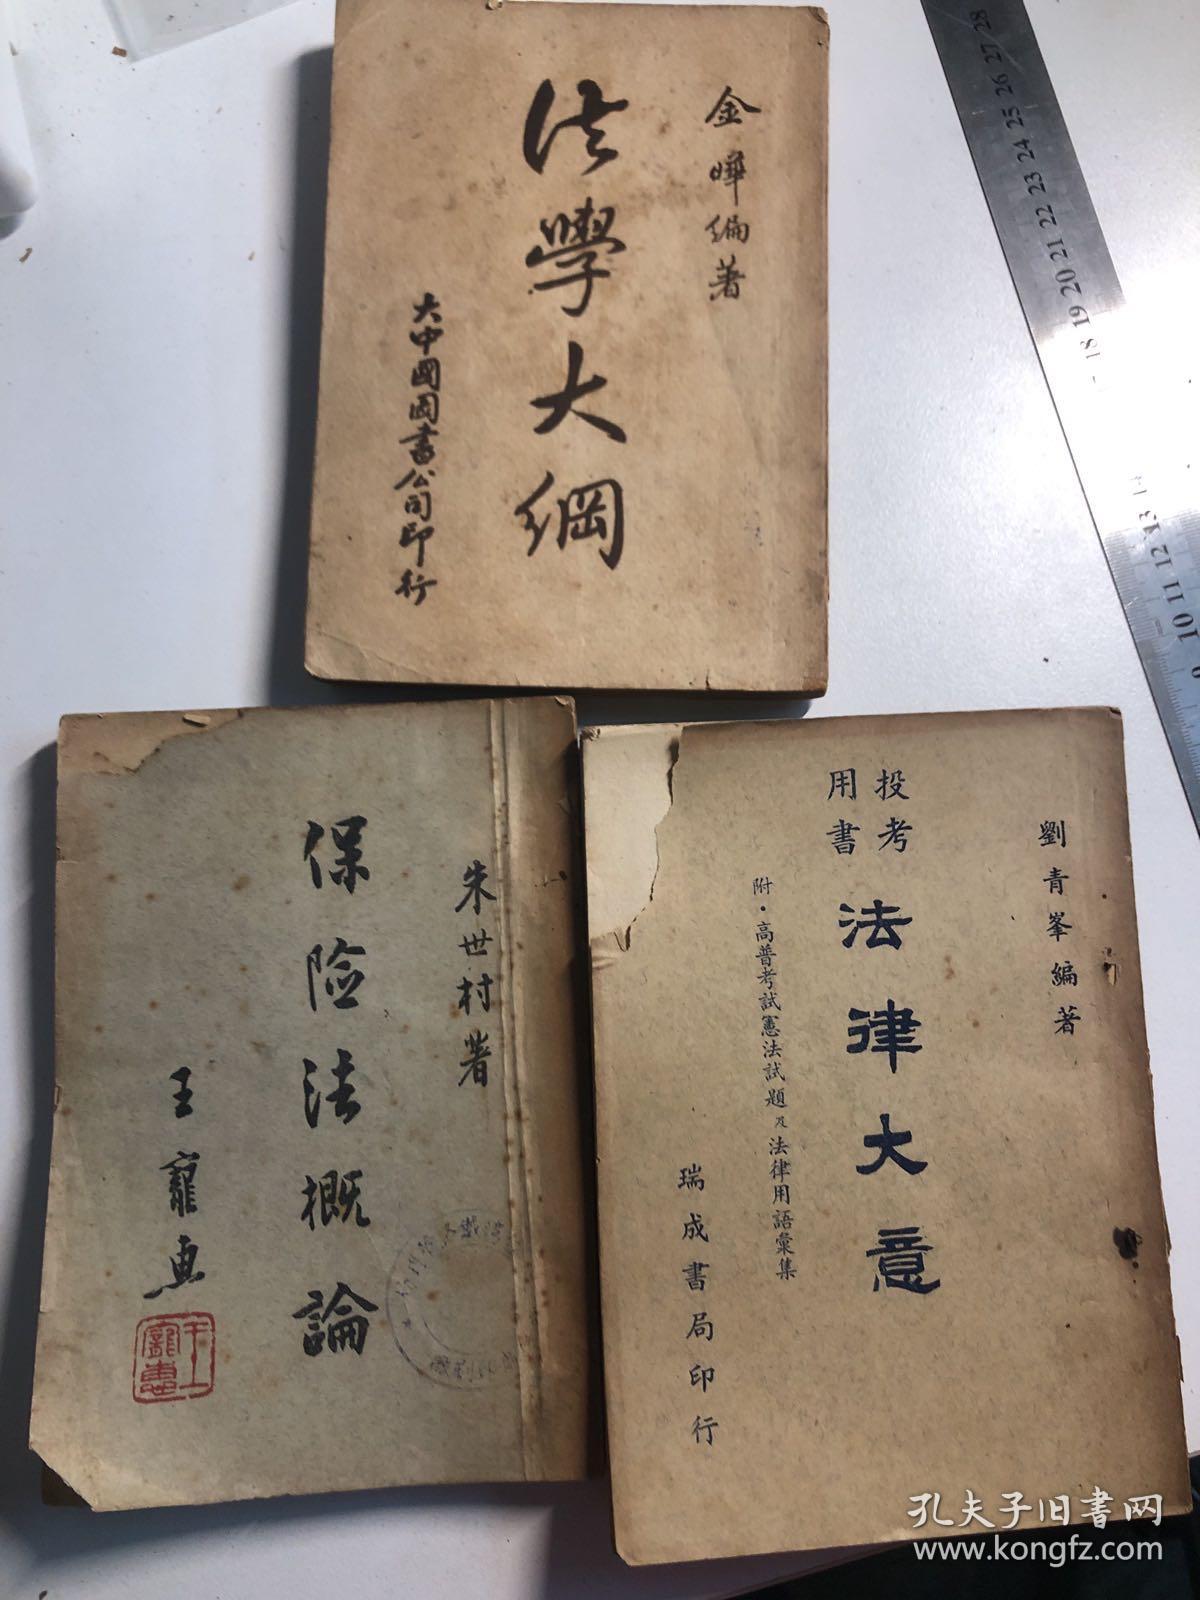 金曄編著
法學大綱
大中國圖書公司印行
朱世村著
保險法概論
王寵惠
王寵惠
劉青峯編著
投考用書
法律大意
附·高普考試憲法試題及法律用語彙集
瑞成書局印行
28
27
26
25
24
23
22
21
20
19
18
13
12
11
10
9
孔夫子旧书网
www.kongfz.com